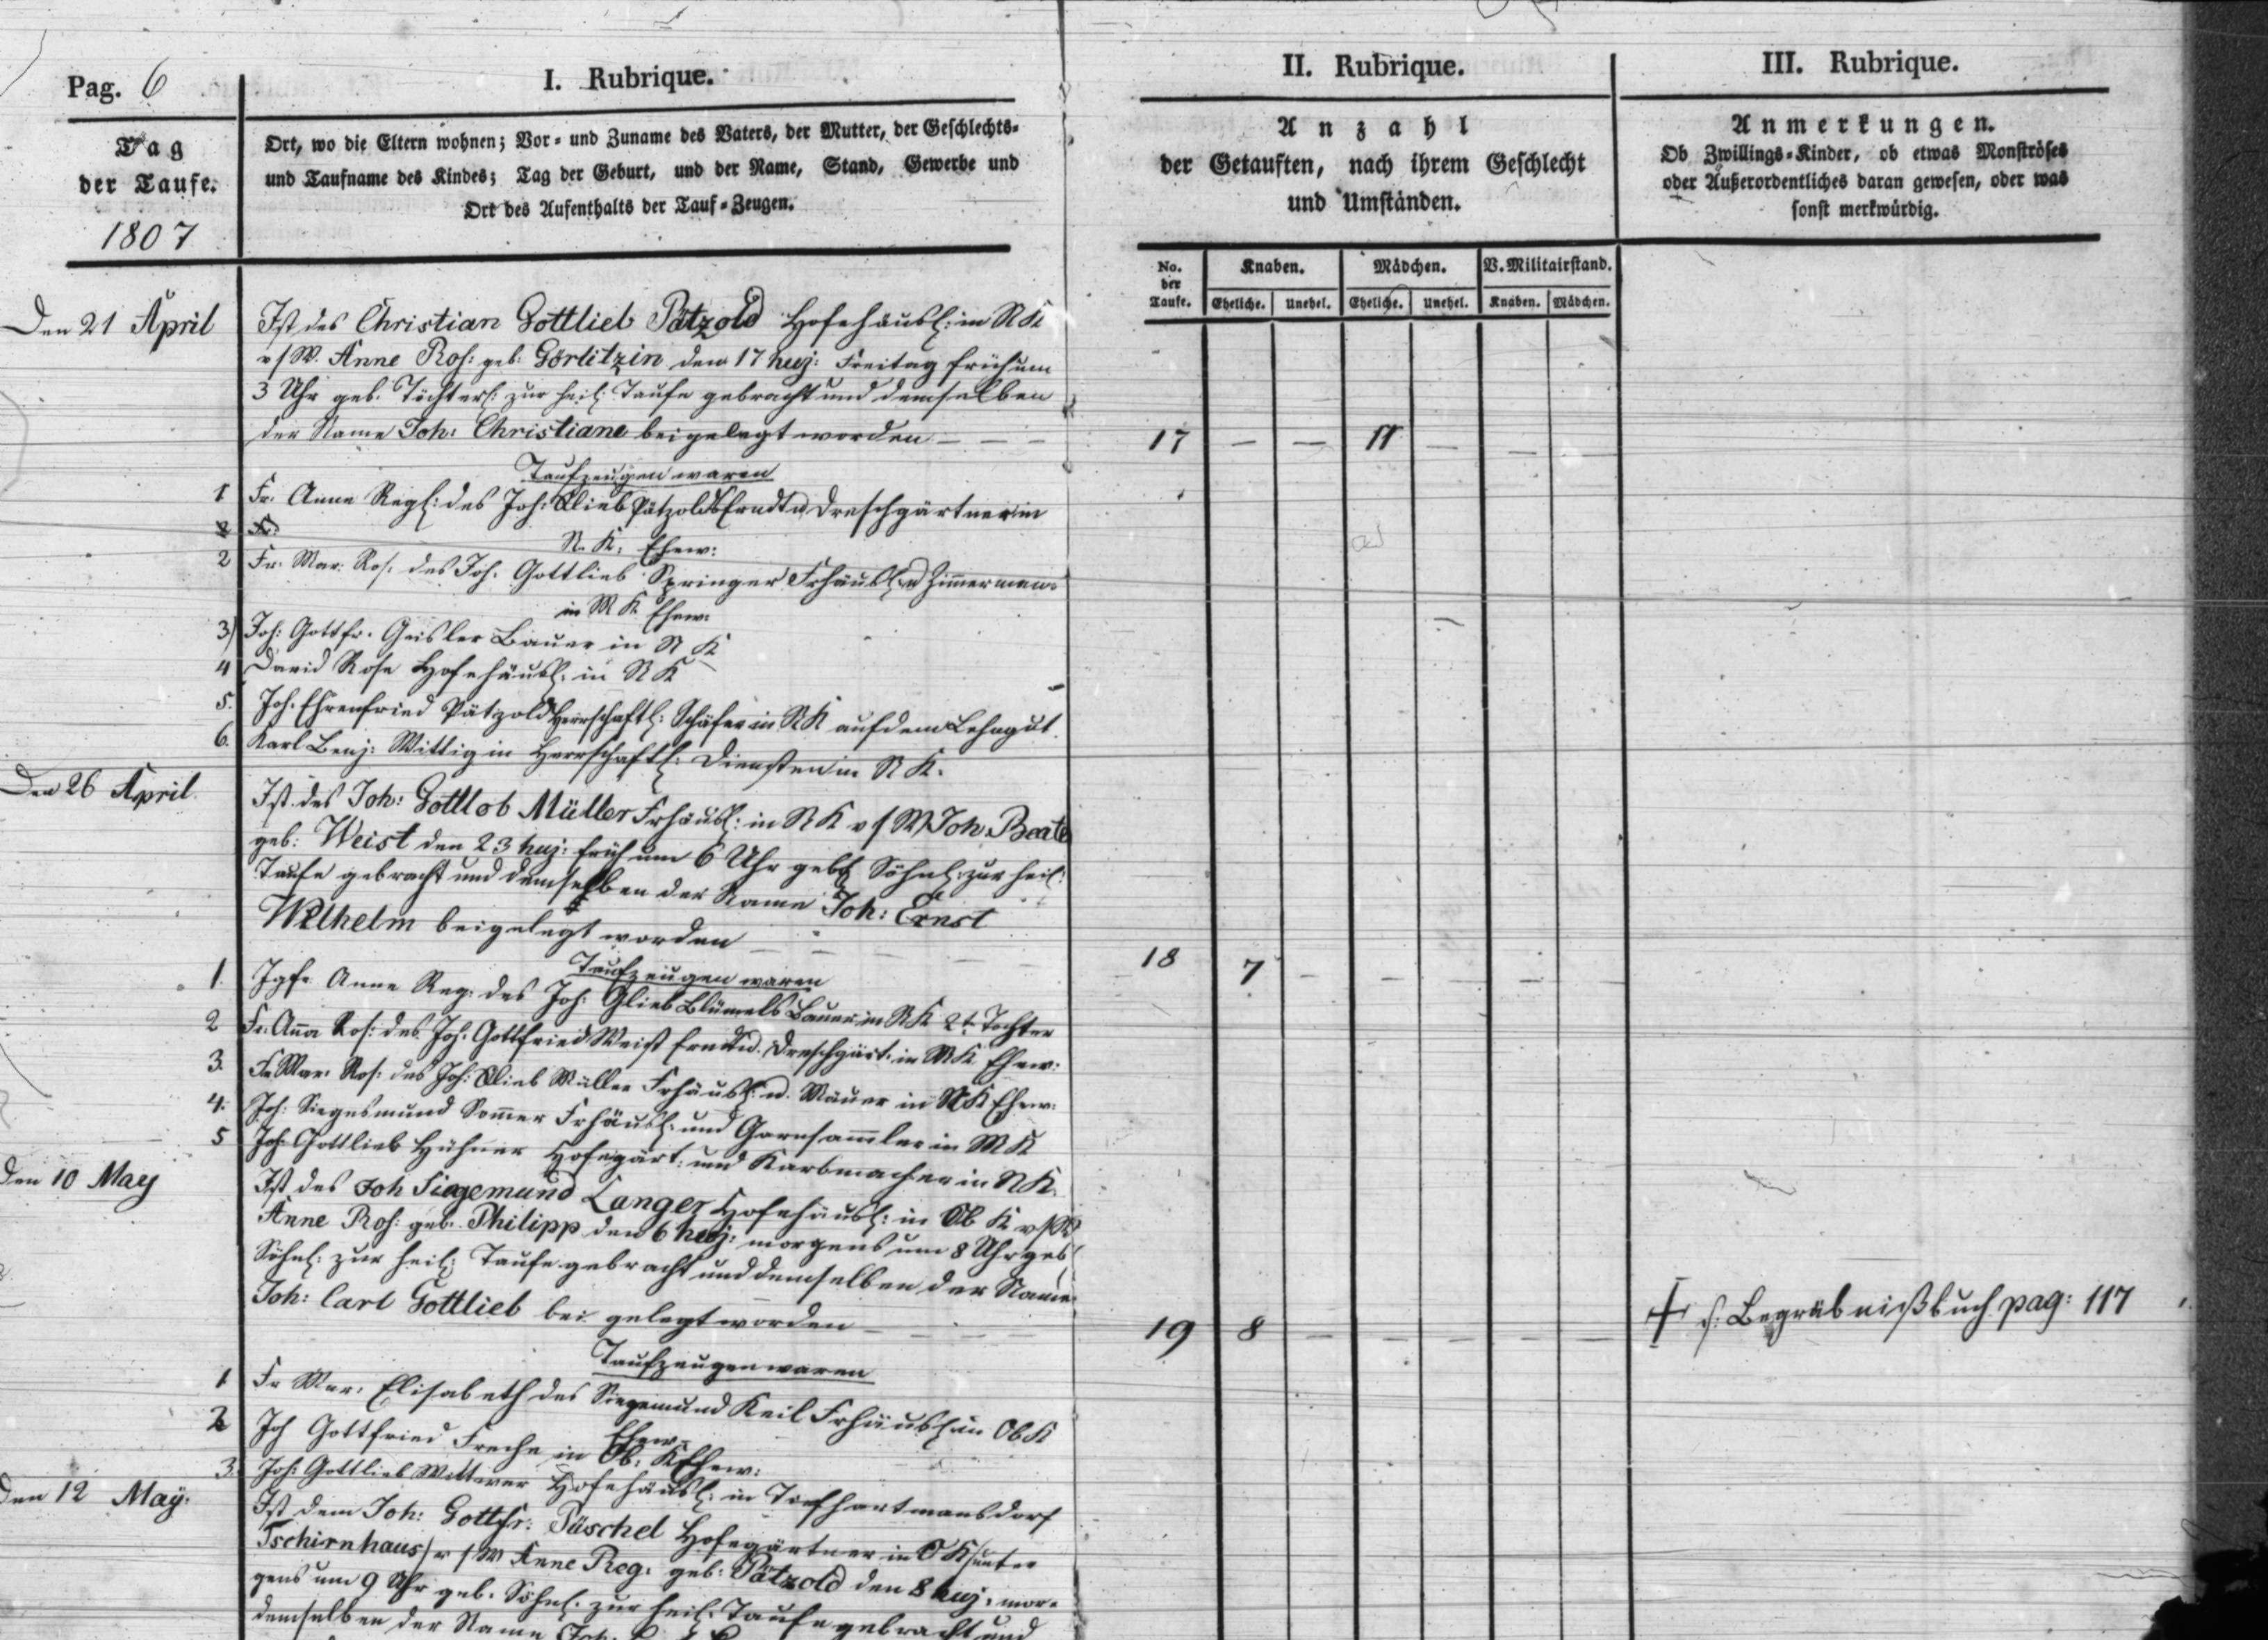 Pag. 6
I. Rubrique.
II. Rubrique.
III. Rubrique.
Tag
der Taufe.
1807
Ort, wo die Eltern wohnen; Vor- und Zuname des Vaters, der Mutter, der Geschlechts-
und Taufname des Kindes; Tag der Geburt, und der Name, Stand, Gewerbe und
Ort des Aufenthalts der Tauf-Zeugen.
Anzahl
der Getauften, nach ihrem Geschlecht
und Umständen.
Anmerkungen.
Ob Zwillings-Kinder, ob etwas Monströses
oder Außerordentliches daran gewesen, oder was
sonst merkwürdig.
No. der Taufe.
Knaben. Mädchen. V. Militairstand.
Eheliche. Unehel. Eheliche. Unehel. Knaben. Mädchen.
Den 21 April
Ist des Christian Gottlieb Pätzold Hofehäusl: in NK
v/W. Anne Ros: geb: Görlitzin den 17 huj: Freitag früh um
3 Uhr geb. Töchterl: zur heil: Taufe gebracht und demselben
der Name Joh: Christiane beigelegt worden — — —
17 — — 11 — — —
Taufzeugen waren
1 Fr. Anne Regl: des Joh: Glieb Pätzold Dreschgärtner in
N. K. Ehew:
2 Fr. Mar. Ros. des Joh. Gottlieb Springer Frhäusl: u Zimmerman
in M K Ehew:
3) Joh: Gottfr. Geisler Bauer in N K
4 David Rose Hofehäusl. in N K
5. Joh. Ehrenfried Pätzold Herrschaftl: Schäfer in NK auf dem Lehngut.
6. Karl Benj: Wittig in Herrschaftl: Diensten in N K.
Den 26 April
Ist des Joh: Gottlob Müller Frhäusl: in N K v/W Joh. Beate
geb: Weist den 23 huj: früh um 6 Uhr geb Söhnl: zur heil:
Taufe gebracht und demselben der Name Joh: Ernst
Wilhelm beigelegt worden — — — —
18 7 — — — — —
Taufzeugen waren
1. Jgfr. Anne Reg. des Joh: Glieb Blümels Bauer in NK 2t. Tochter
2 Fr. Aña Ros: des Joh. Gottfried Weist Dreschgärt. in MK Ehew:
3. Fr Mar. Ros: des Joh: Glieb Müller Frhäusl: u. Mäurer in NK Ehew:
4. Joh: Siegesmund Somer Frhäusl: und Garnsamler in M K
5 Joh. Gottlieb Hühner Hofegärt: und Korbmacher in N K.
Den 10 May
Ist des Joh Siegemund Langer Hofehäusl: in Ob K v/W
Anne Ros: geb. Philipp den 6 huj: morgens um 8 Uhr geb
Söhnl: zur heil: Taufe gebracht und demselben der Name
Joh: Carl Gottlieb bei gelegt worden — — —
19 8 — — — — —
† s: Begräbnißbuch pag: 117
Taufzeugen waren
1 Fr Mar. Elisabeth des Siegemund Keil Frhäusl: in Ob K
Ehew:
2 Joh Gottfried Freche in Ob. K Ehew:
3. Joh: Gottlieb Wittwer Hofehäusl: in Tiefhartmansdorf
Den 12 May.
Ist dem Joh: Gottfr: Püschel Hofegärtner in O K/unter
Tschirnhaus/ v/W Anne Reg. geb: Pätzold den 8 huj: mor-
gens um 9 Uhr geb. Söhnl. zur heil. Taufe gebracht und
demselben der Name Joh.